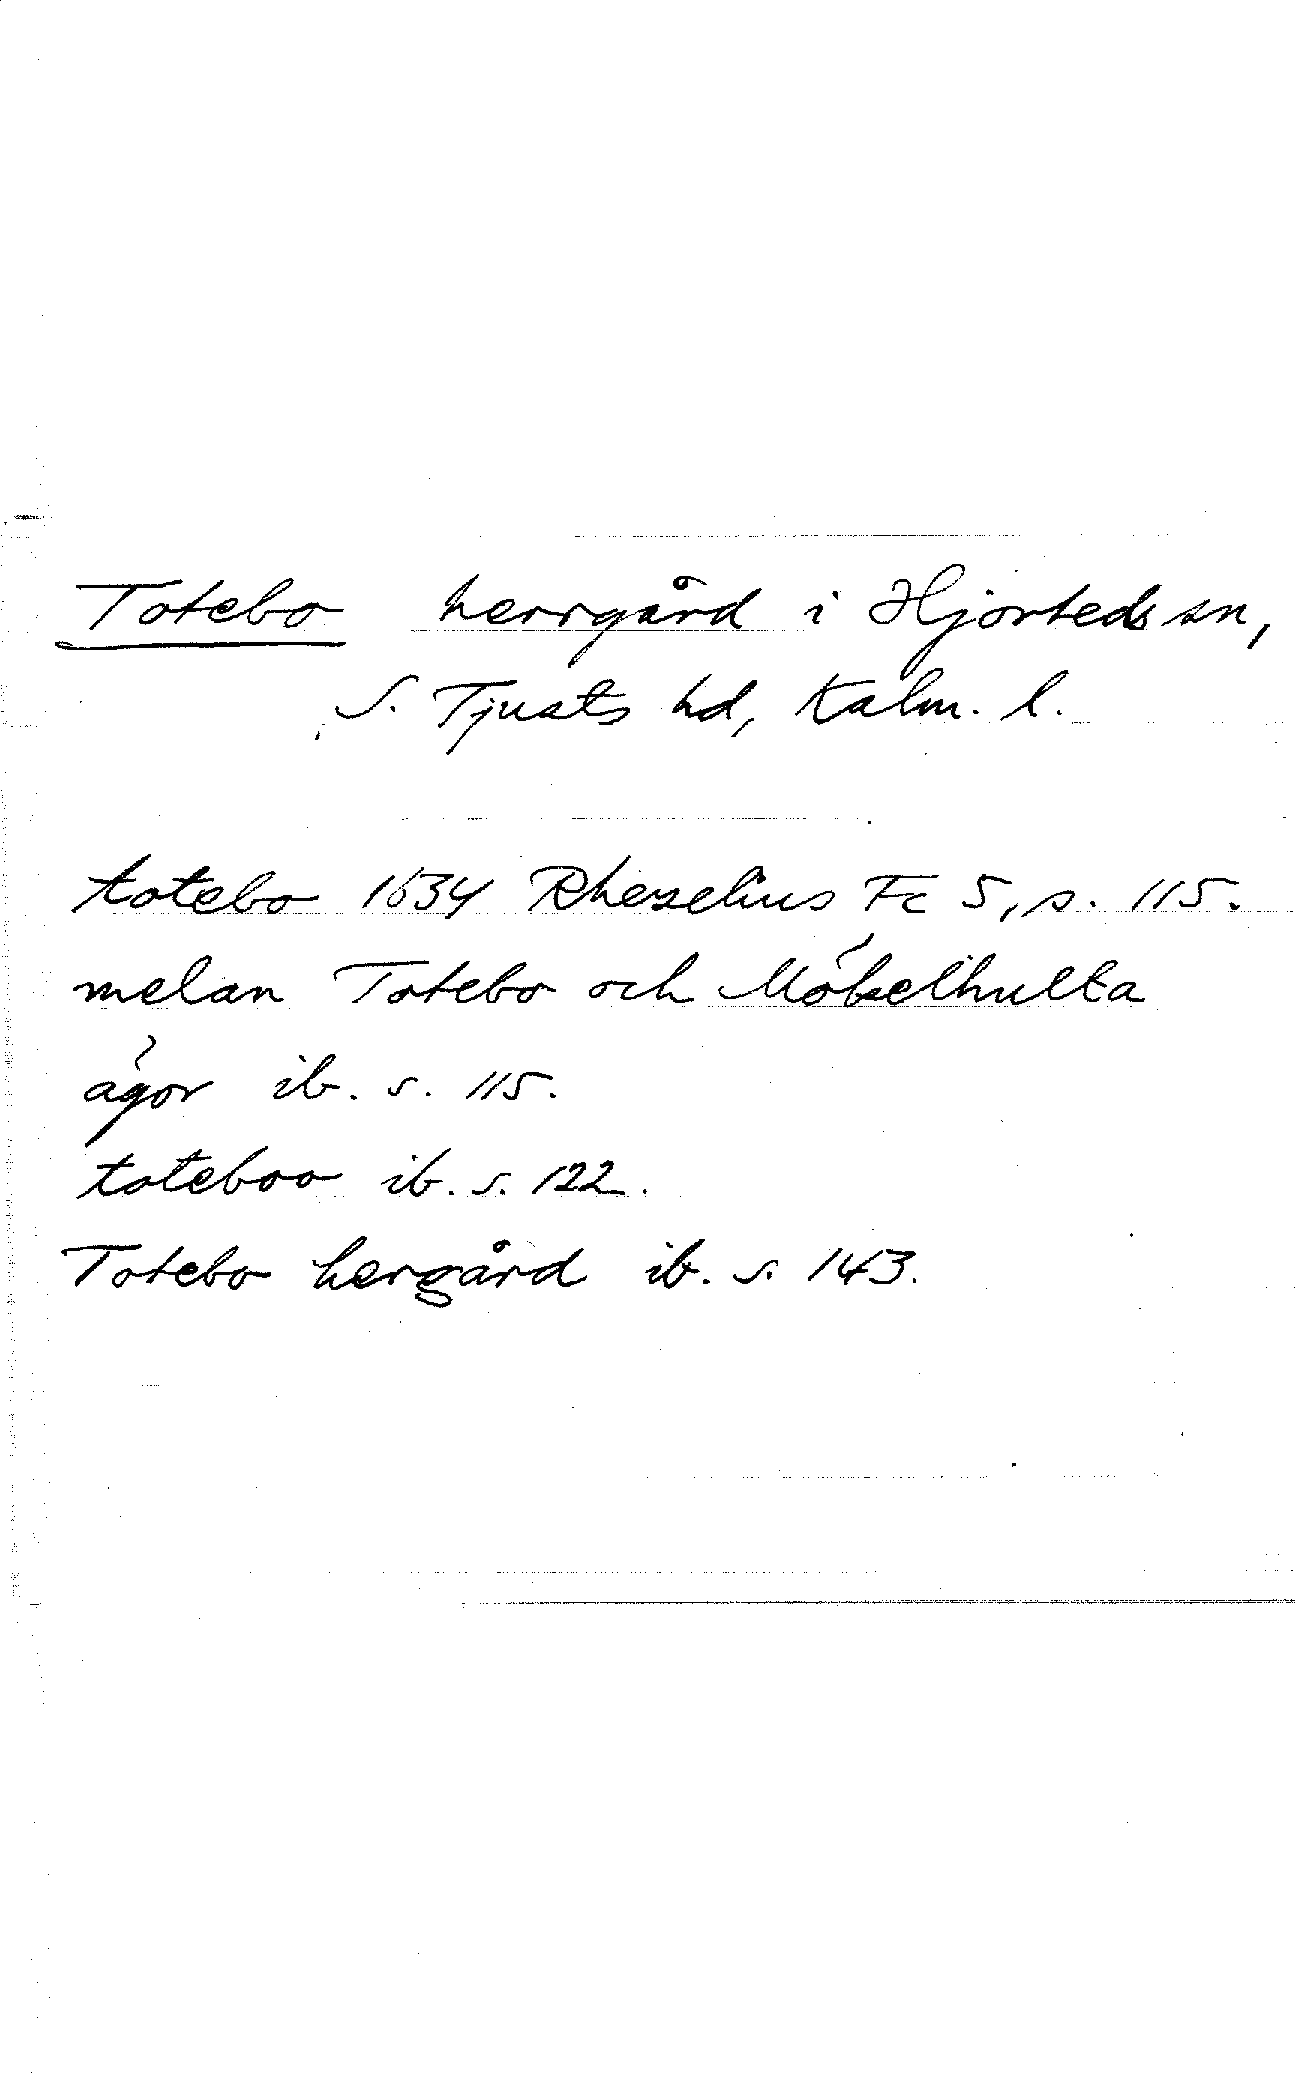 Totebo herrgård i Hjorteds sn,
S. Tjusts hd, Kalm. l.
totebo 1634 Rhezelius Fc 5, s. 115.
melan Totebo och Móbelhulta
ágor ib. s. 115.
toteboo ib. s. 122.
Totebo hergård ib. s. 143.